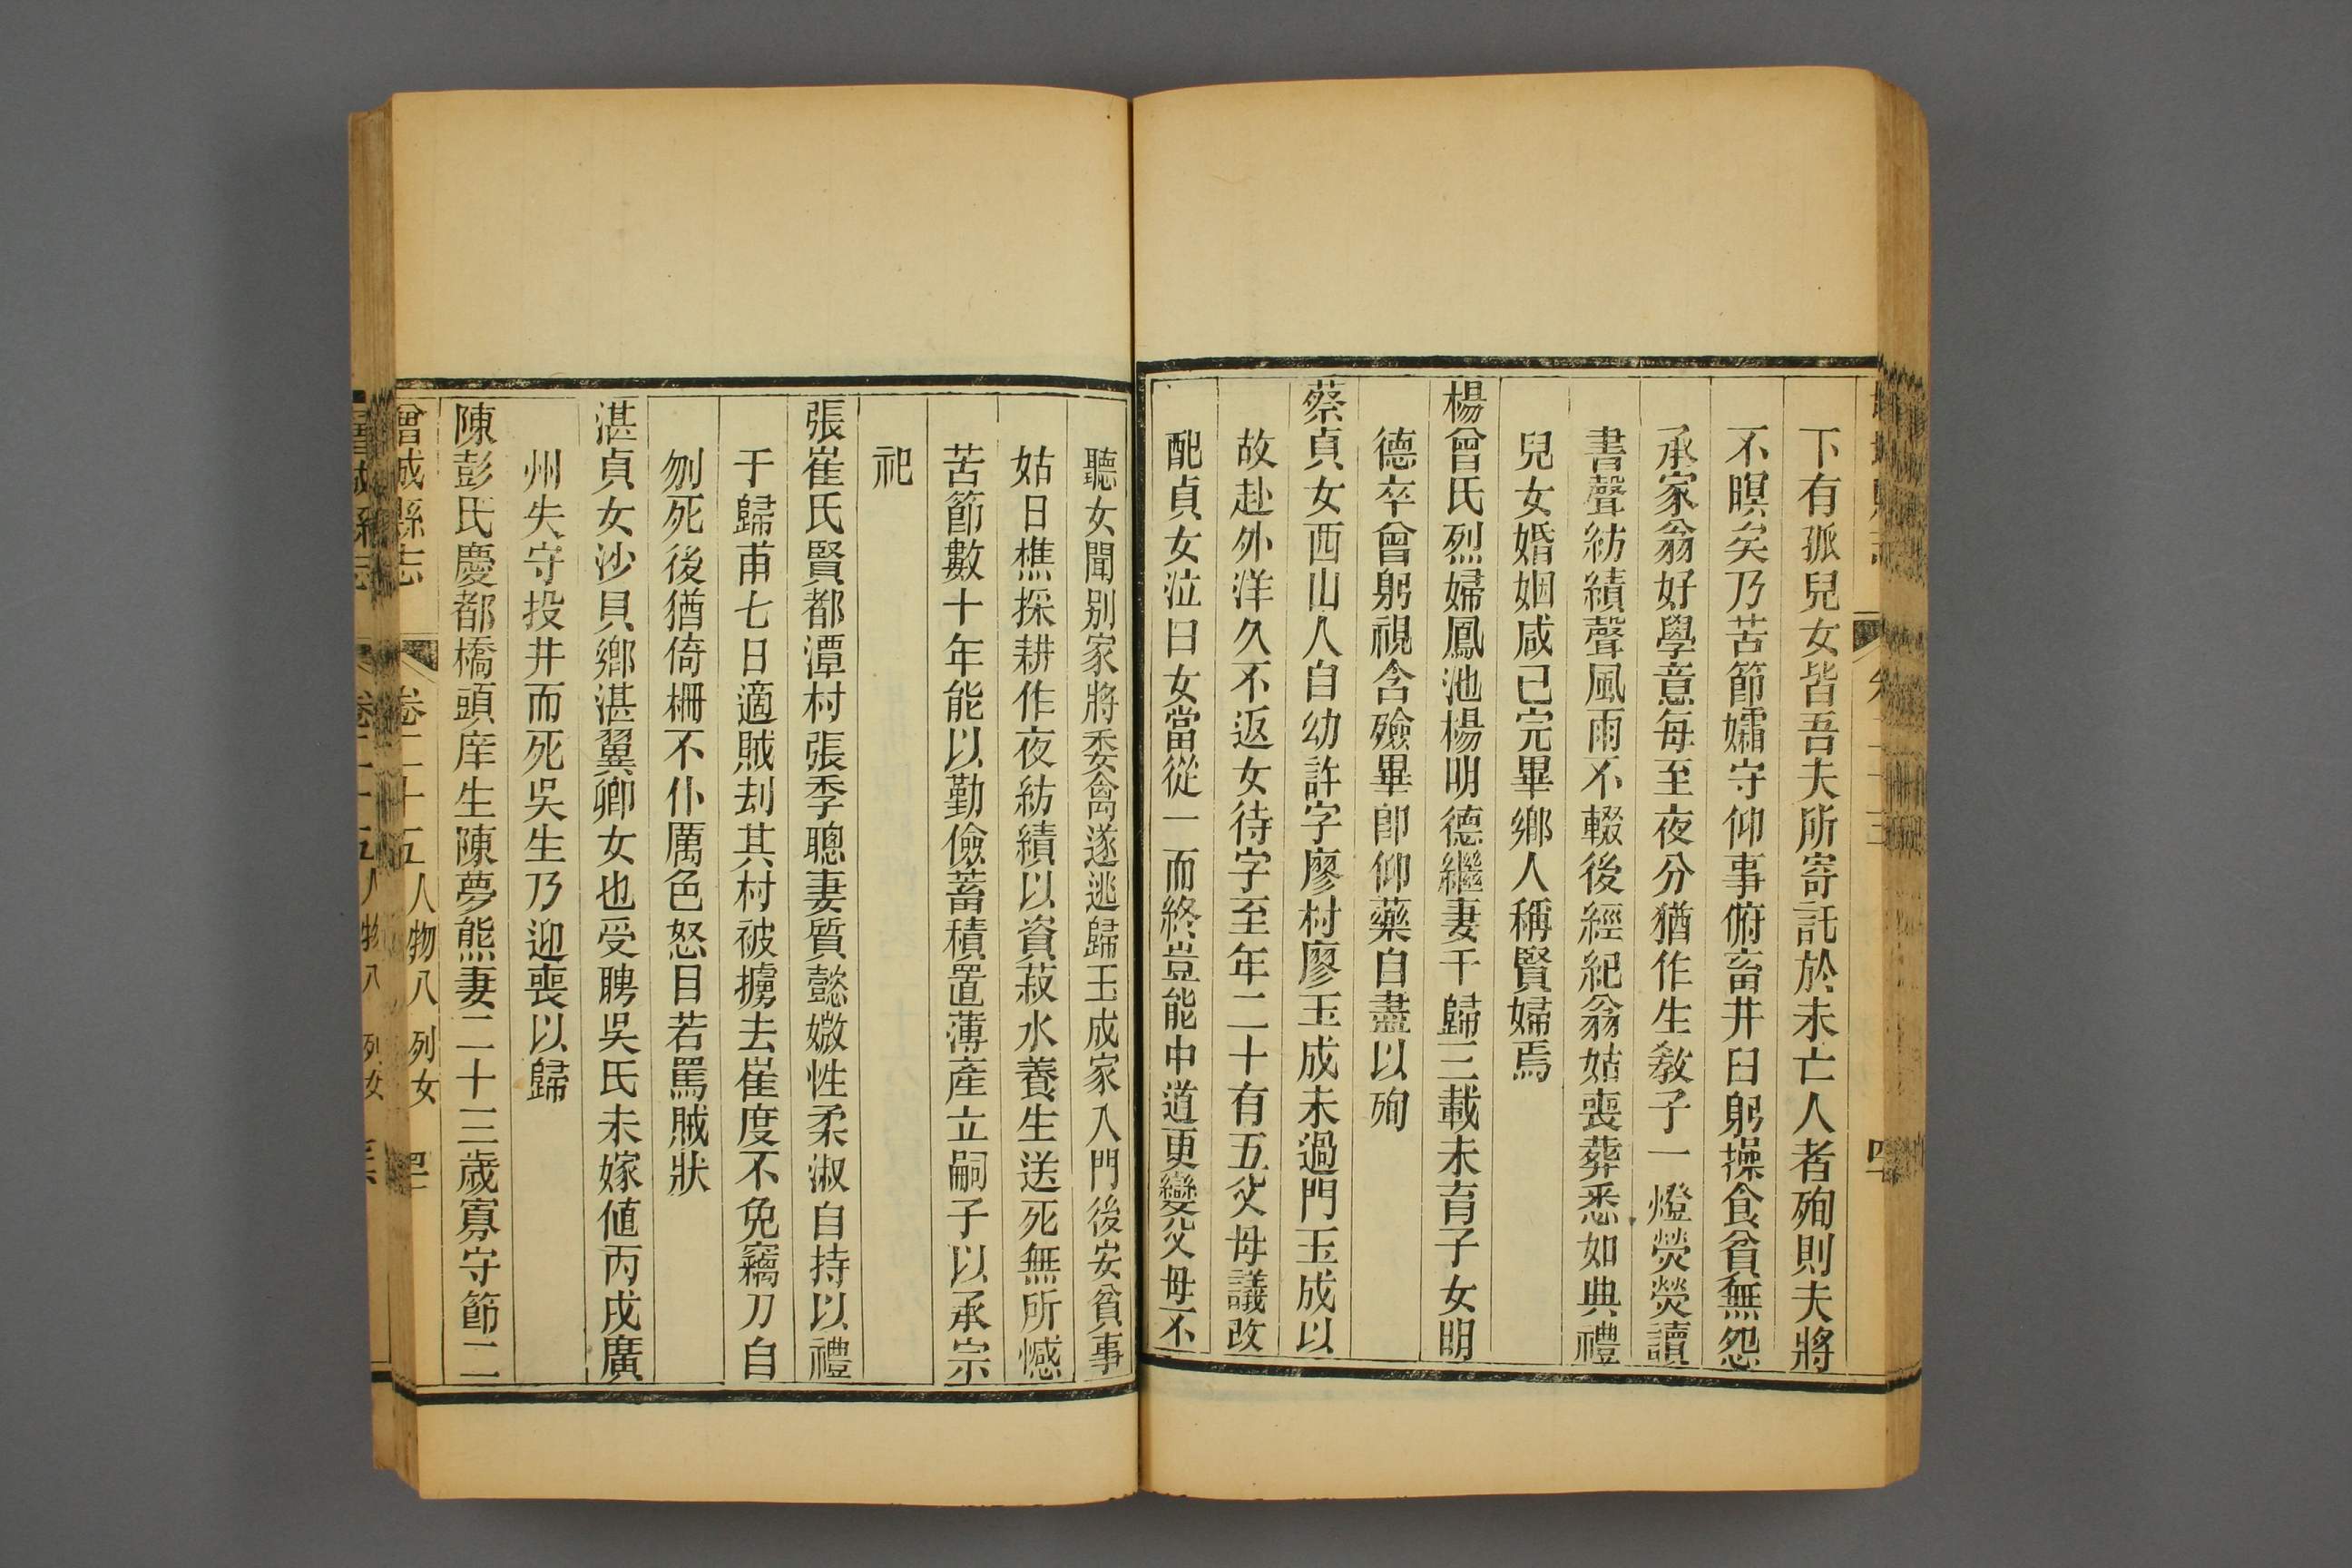 下有孤兒女皆吾夫所寄託於未亡人者殉則夫將
不暝矣乃苦節孀守仰事俯畜井臼躬操食貧無怨
承家翁好學意每至夜分猶作生教子一燈熒熒讀
書聲紡績聲風雨不輟後經紀翁姑喪葬悉如典禮
兒女婚姻咸已完畢鄉人稱賢婦焉
楊曾氏烈婦鳳池楊明德繼妻于歸三載未育子女明
德卒曾躬視含殮畢卽仰藥自盡以殉
蔡貞女西山人自幼許字廖村廖玉成未過門玉成以
故赴外洋久不返女待字至年二十有五父母議改
配貞女泣曰女當從一而終豈能中道更變父母不
聽女聞別家將委禽遂逃歸玉成家入門後安貧事
姑日樵採耕作夜紡績以資菽水養生送死無所憾
苦節數十年能以勤儉蓄積置薄產立嗣子以承宗
祀
張崔氏賢都潭村張季聰妻質懿媺性柔淑自持以禮
于歸甫七日適賊刦其村被擄去崔度不免竊刀自
刎死後猶倚柵不仆厲色怒目若罵賊狀
湛貞女沙貝鄉湛翼卿女也受聘吳氏未嫁値丙戌廣
州失守投井而死吳生乃迎喪以歸
陳彭氏慶都橋頭庠生陳夢熊妻二十三歲寡守節二
曾城縣志 卷二十五 人物八 列女